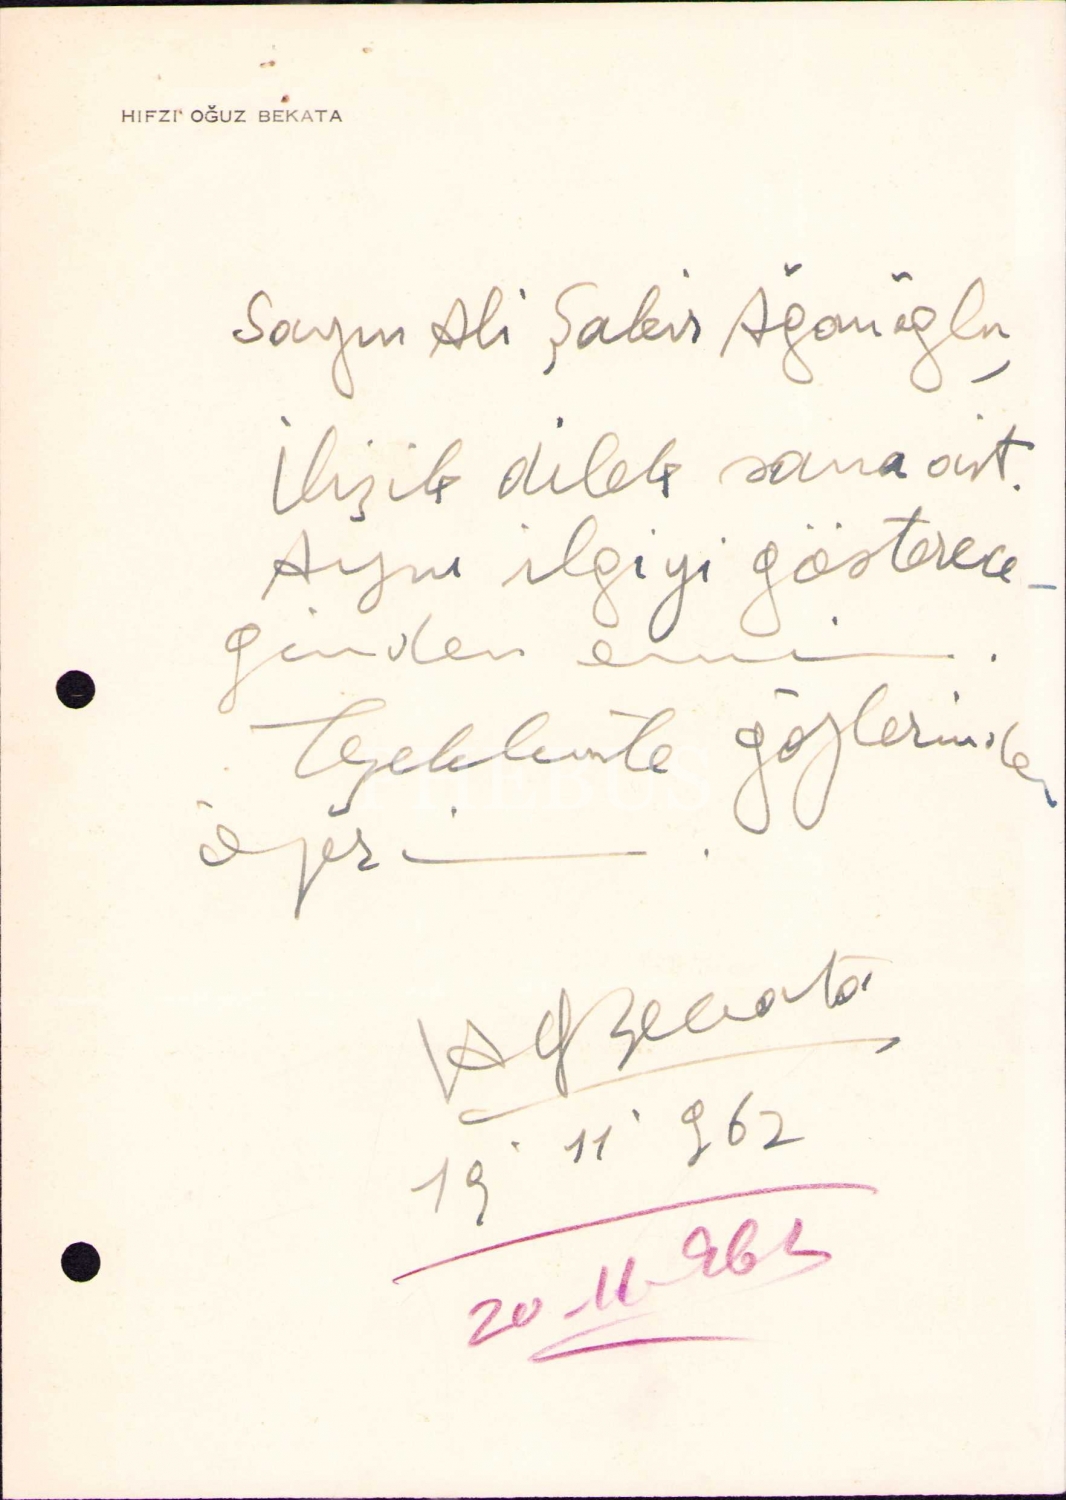 HIFZI OĞUZ BEKATA
Sayın Ali Şakir Ağanoğlu,
İlişik dilek sana ait.
Aynı ilgiyi gösterece-
ğinden eminim.
Teşekkürle gözlerinden
öperim.
HOBekata
19 11 962
20-11-962
PHEBUS